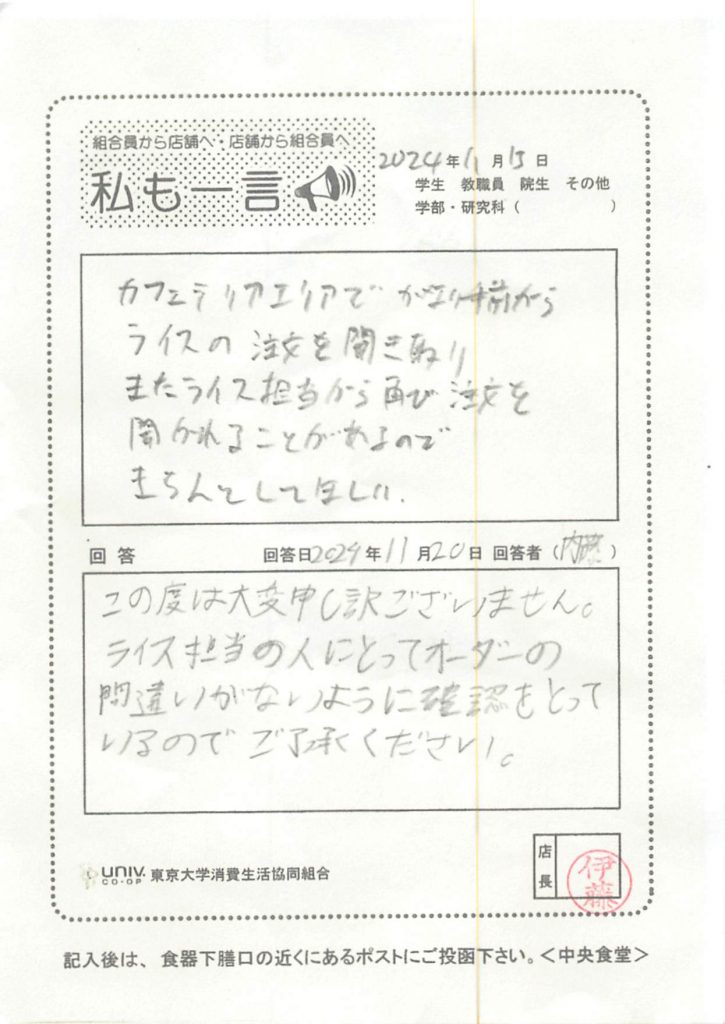 組合員から店舗へ・店舗から組合員へ
私も一言
2024年11月13日
学生 教職員 院生 その他
学部・研究科（ ）
カフェテリアエリアで が 前から
ライスの 注文を聞き取り
またライス担当から再び注文を
聞かれることがあるので
きちんとしてほしい.
回答 回答日2024年11月20日 回答者（内藤）
この度は大変申し訳ございません。
ライス担当の人にとってオーダーの
間違いがないように確認をとって
いるのでご了承ください。
店長
伊藤
UNIV. CO-OP 東京大学消費生活協同組合
記入後は、食器下膳口の近くにあるポストにご投函下さい。＜中央食堂＞